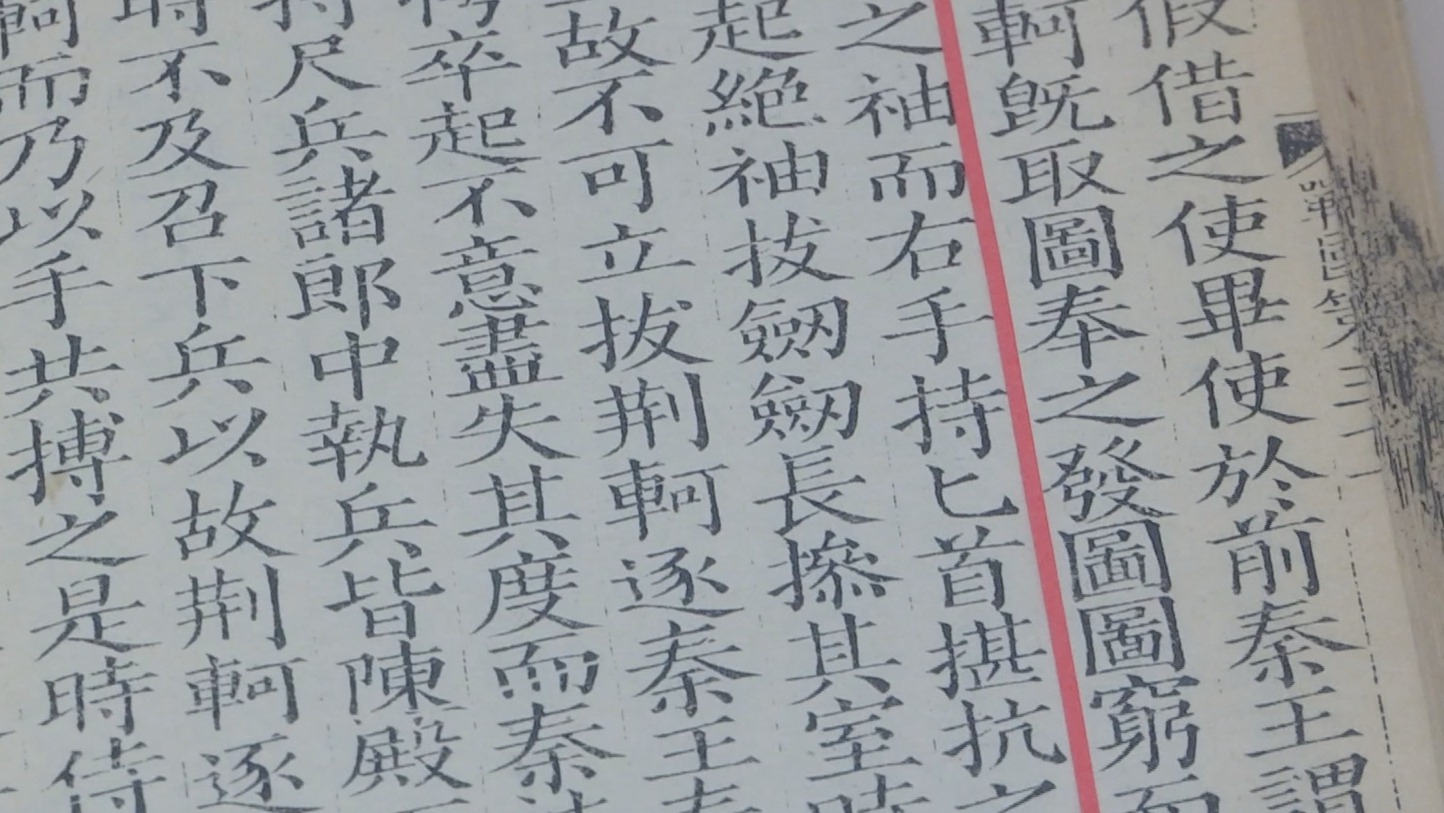 戰國
假借之使畢使於前秦王謂
軻既取圖奉之發圖圖窮而
之袖而右手持匕首揕抗之
起絶袖拔劒劒長摻其室時
故不可立拔荆軻逐秦王秦
愕卒起不意盡失其度而秦法
持尺兵諸郎中執兵皆陳殿
時不及召下兵以故荆軻逐
軻而乃以手共搏之是時侍